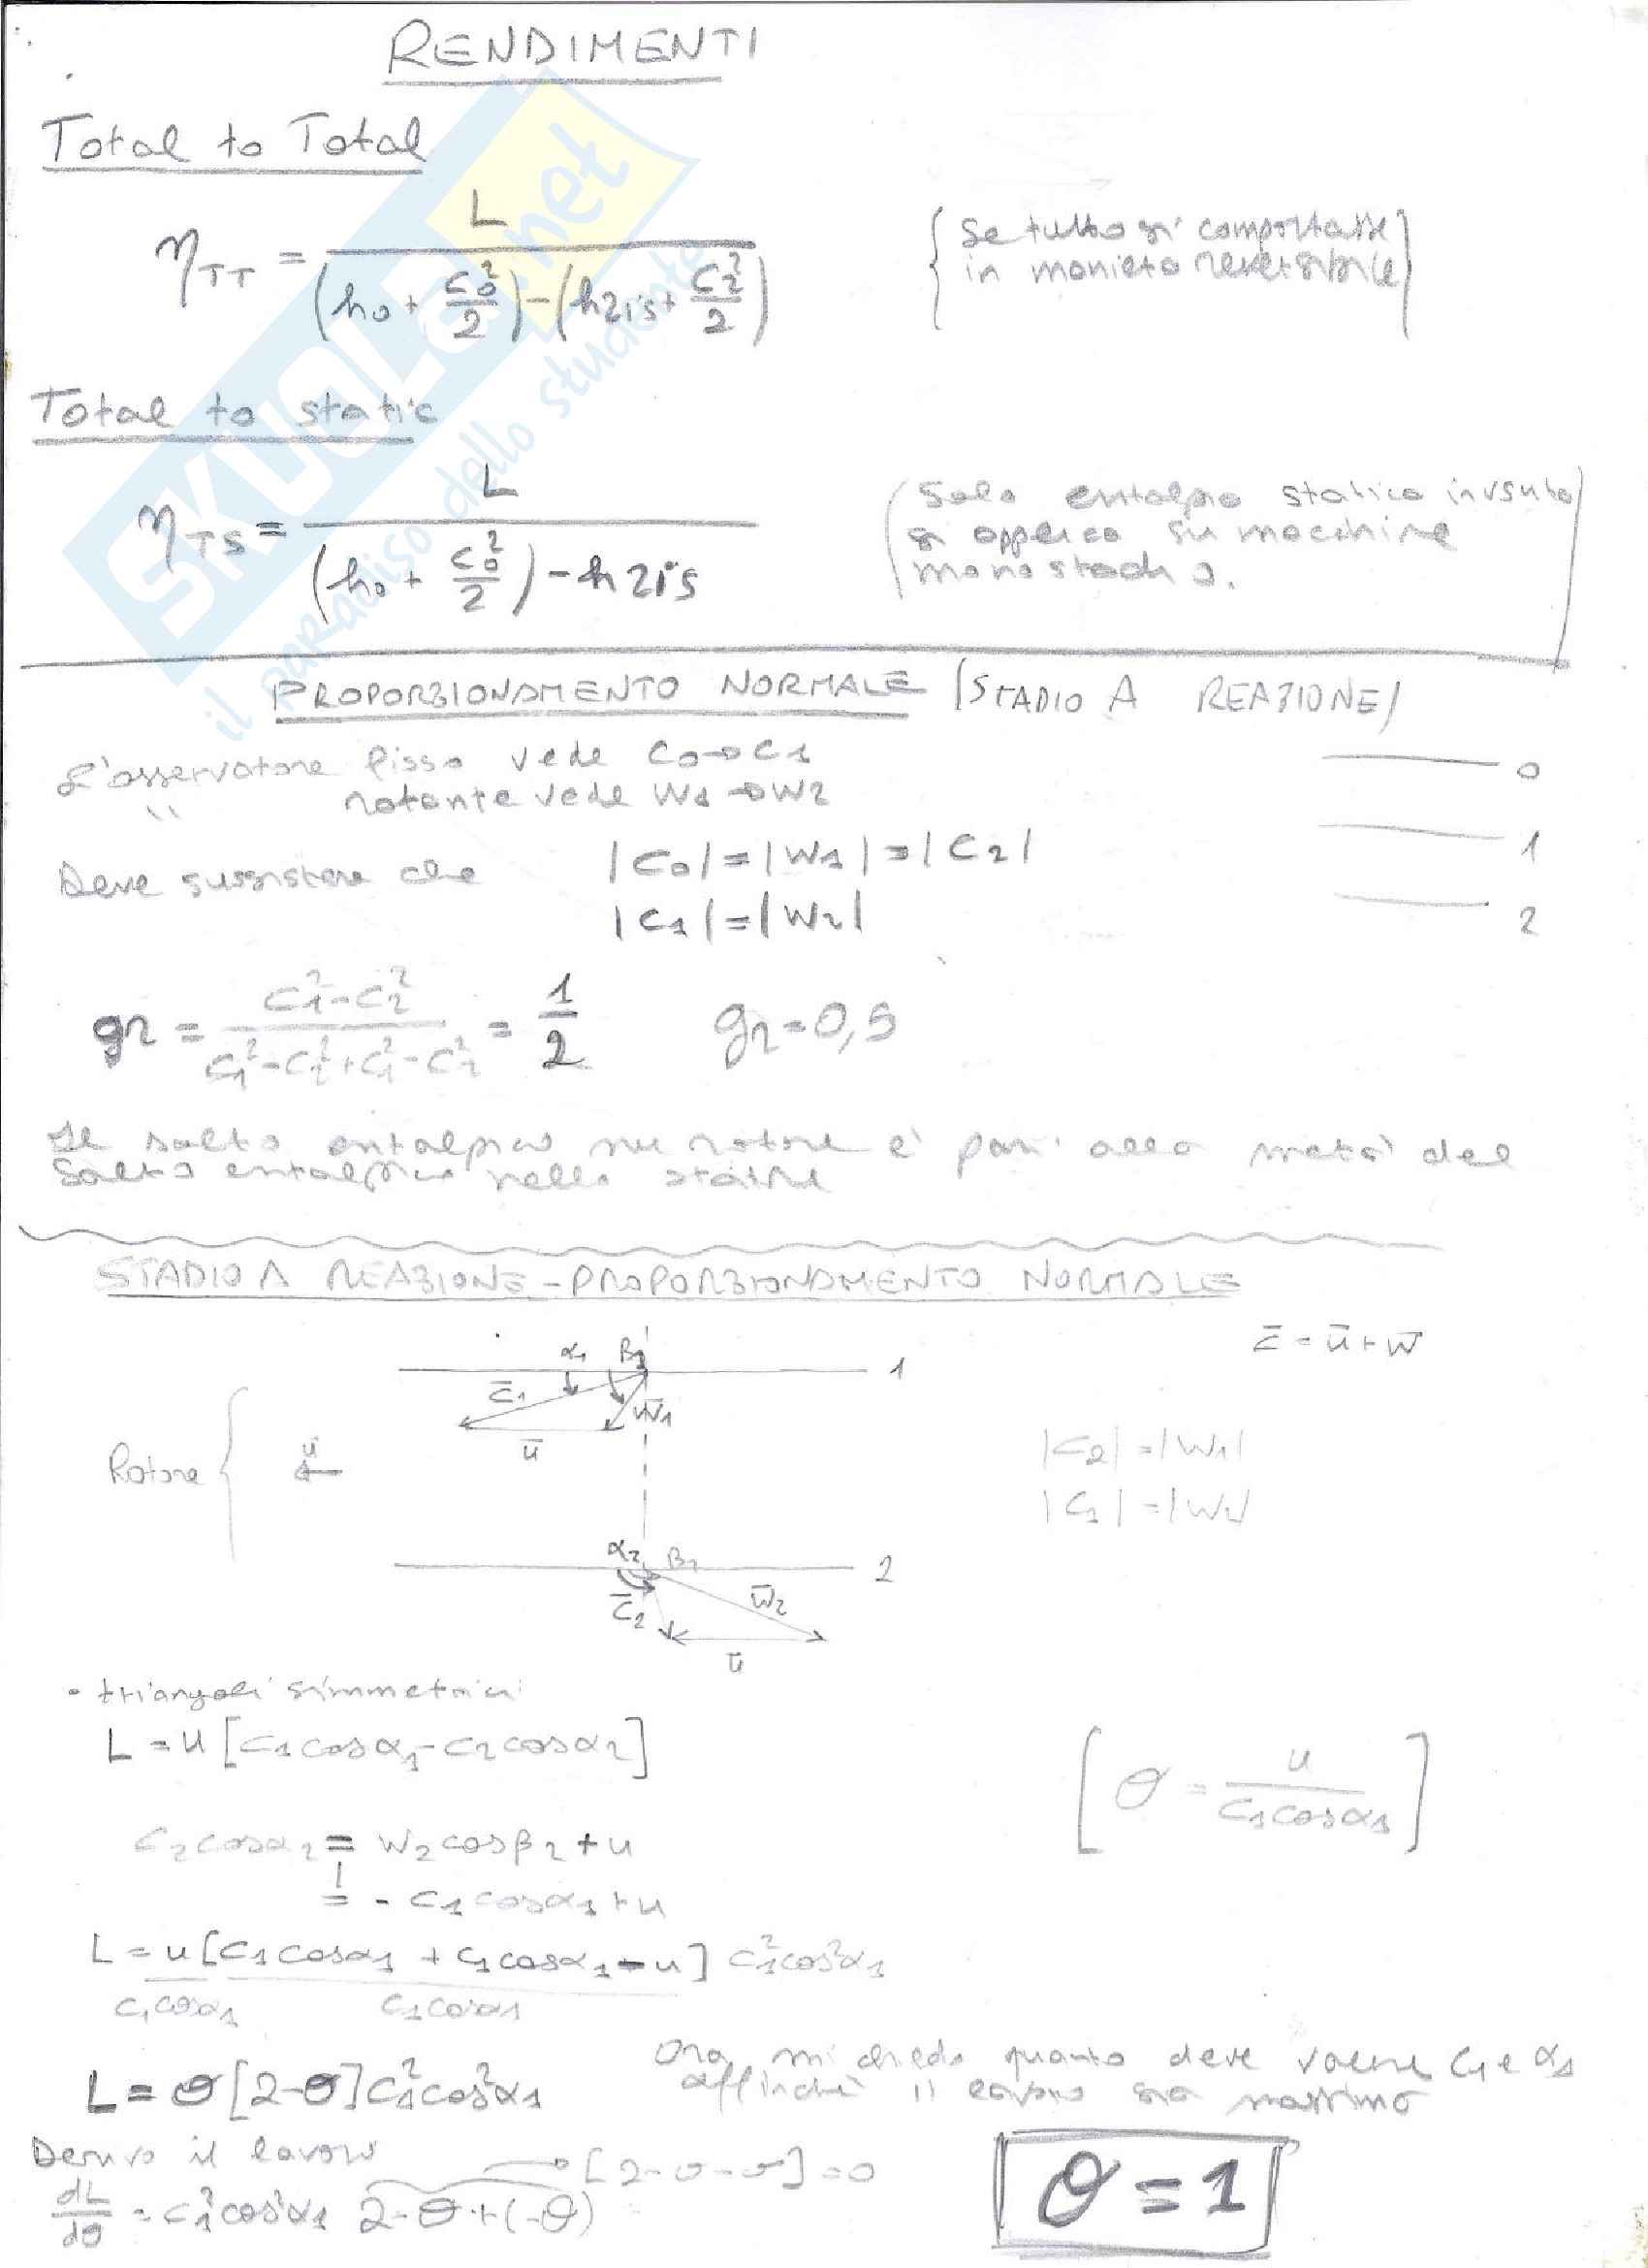 RENDIMENTI
Total to Total
η_TT = L / ((h₀ + c₀²/2) - (h2is + c₂²/2))
{Se tutto si comportasse
in maniera reversibile}
Total to static
η_TS = L / ((h₀ + c₀²/2) - h2is)
(Solo entalpia statica
si applica su macchine
monostadio.
PROPORZIONAMENTO NORMALE (STADIO A REAZIONE)
L'osservatore fisso vede C₀→C₁
" rotante vede W₁→W₂
0
1
2
Deve sussistere che |C₀| = |W₁| = |C₂|
|C₁| = |W₂|
gr = (C₁² - C₂²) / (C₁² - C₂² + C₁² - C₂²) = 1/2 gr = 0,5
Il salto entalpico nel rotore e' pari alla metà del
salto entalpico nello
STADIO A REAZIONE - PROPORZIONAMENTO NORMALE
c̄ = ū + w̄
α₁ β₁ 1
c̄₁ w̄₁
ū
Rotore { u
|C₂| = |W₁|
|C₁| = |W₂|
α₂ β₂ 2
c̄₂ w̄₂
ū
• triangoli simmetrici
L = u [c₁cosα₁ - c₂cosα₂]
[σ = u / (c₁cosα₁)]
c₂cosα₂ = w₂cosβ₂ + u
= - c₁cosα₁ + u
L = u [c₁cosα₁ + c₁cosα₁ - u] c₁²cos²α₁
c₁cosα₁ c₁cosα₁
L = σ[2-σ]c₁²cos²α₁
Ora mi chiedo quanto deve valere c₁ e α₁
affinché il lavoro sia massimo
Derivo il lavoro
→ [2-σ-σ] = 0
dL/dσ = c₁²cos²α₁ 2-σ+(-σ)
σ = 1
SKUOLA.net
il paradiso dello studente